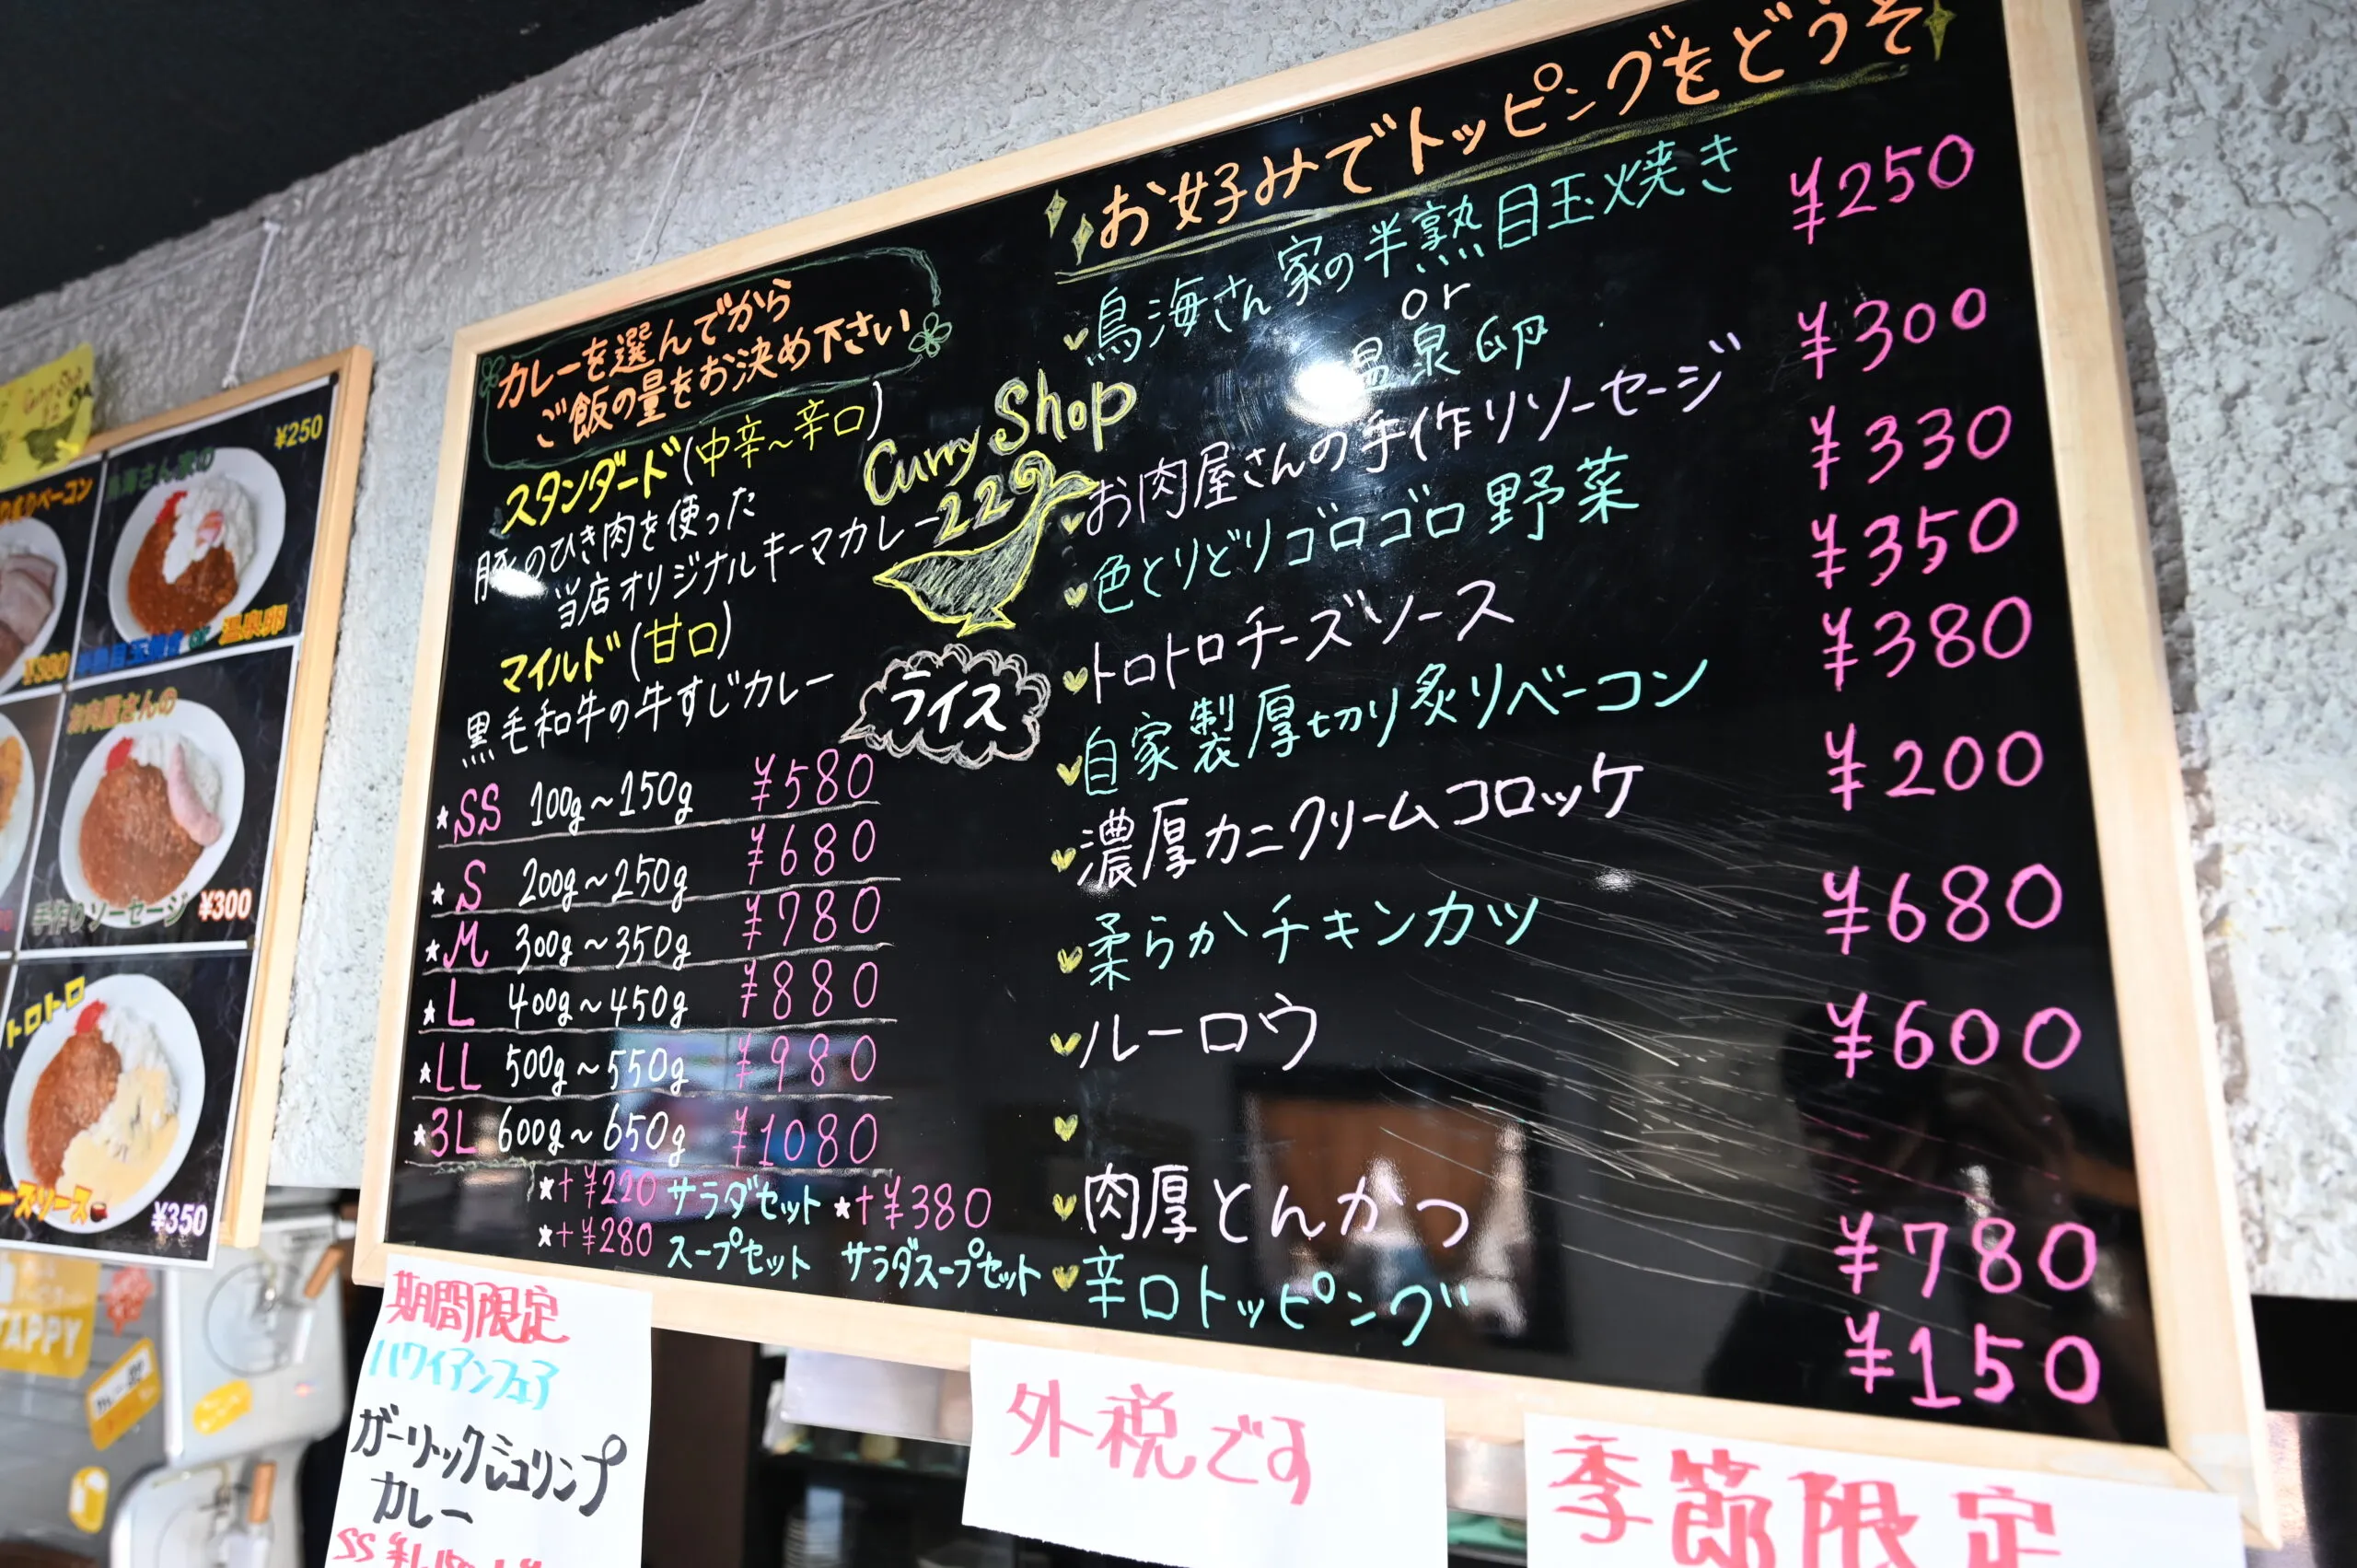 カレーを選んでから
ご飯の量をお決め下さい
スタンダード(中辛~辛口)
豚のひき肉を使った
当店オリジナルキーマカレー
マイルド(甘口)
黒毛和牛の牛すじカレー
Curry Shop
229
ライス
★SS 100g~150g ¥580
★S 200g~250g ¥680
★M 300g~350g ¥780
★L 400g~450g ¥880
★LL 500g~550g ¥980
★3L 600g~650g ¥1080
★+¥220 サラダセット ★+¥380
★+¥280 スープセット サラダスープセット
お好みでトッピングをどうぞ
鳥海さん家の半熟目玉焼き ¥250
or
温泉卵
お肉屋さんの手作りソーセージ ¥300
色とりどりゴロゴロ野菜 ¥330
トロトロチーズソース ¥350
自家製厚切り炙りベーコン ¥380
濃厚カニクリームコロッケ ¥200
柔らかチキンカツ ¥680
ルーロウ ¥600
肉厚とんかつ ¥780
辛口トッピング ¥150
Curry Shop
ベーコン
¥380
鳥海さん家の
¥250
半熟目玉焼き or 温泉卵
お肉屋さんの
手作りソーセージ ¥300
トロトロ
ーズソース
¥350
期間限定
ハワイアンフェア
ガーリックシュリンプ
カレー
SS
外税です
季節限定